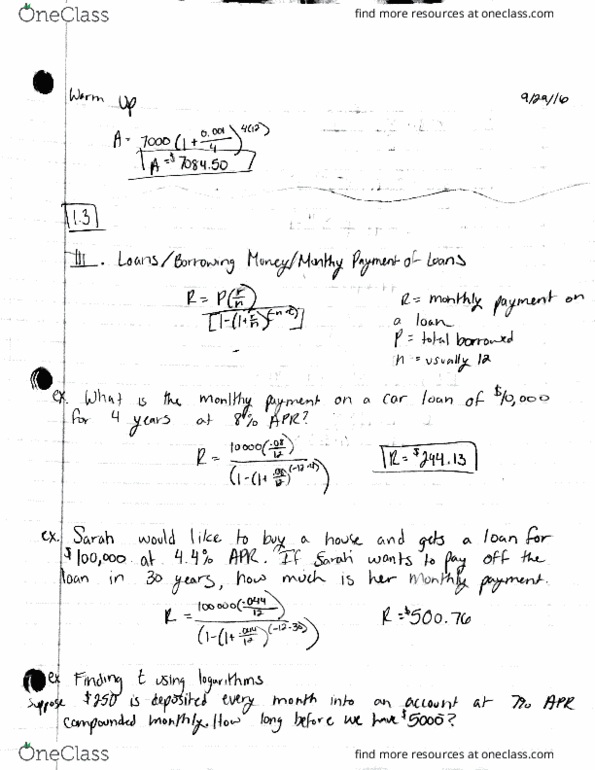 OneClass
find more resources at oneclass.com
Warm Up
9/29/16
A = 7000 (1 + 0.001/4)^4(12)
A = $7084.50
1.3
III. Loans/Borrowing Money/Monthy Payment of Loans
R = P(r/n) / [1-(1+r/n)^(-n·t)]
R = monthly payment on
a loan
P = total borrowed
n = usually 12
ex. What is the monlthy payment on a car loan of $10,000
for 4 years at 8% APR?
R = 10000(.08/12) / (1-(1+.08/12)^(-12·4))
R = $244.13
ex. Sarah would like to buy a house and gets a loan for
$100,000 at 4.4% APR. If Sarah wants to pay off the
loan in 30 years, how much is her monthly payment.
R = 100000(.044/12) / (1-(1+.044/12)^(-12·30))
R = $500.76
ex Finding t using logarithms
Suppose $250 is deposited every month into an account at 7% APR
compounded monthly. How long before we have $5000?
OneClass
find more resources at oneclass.com